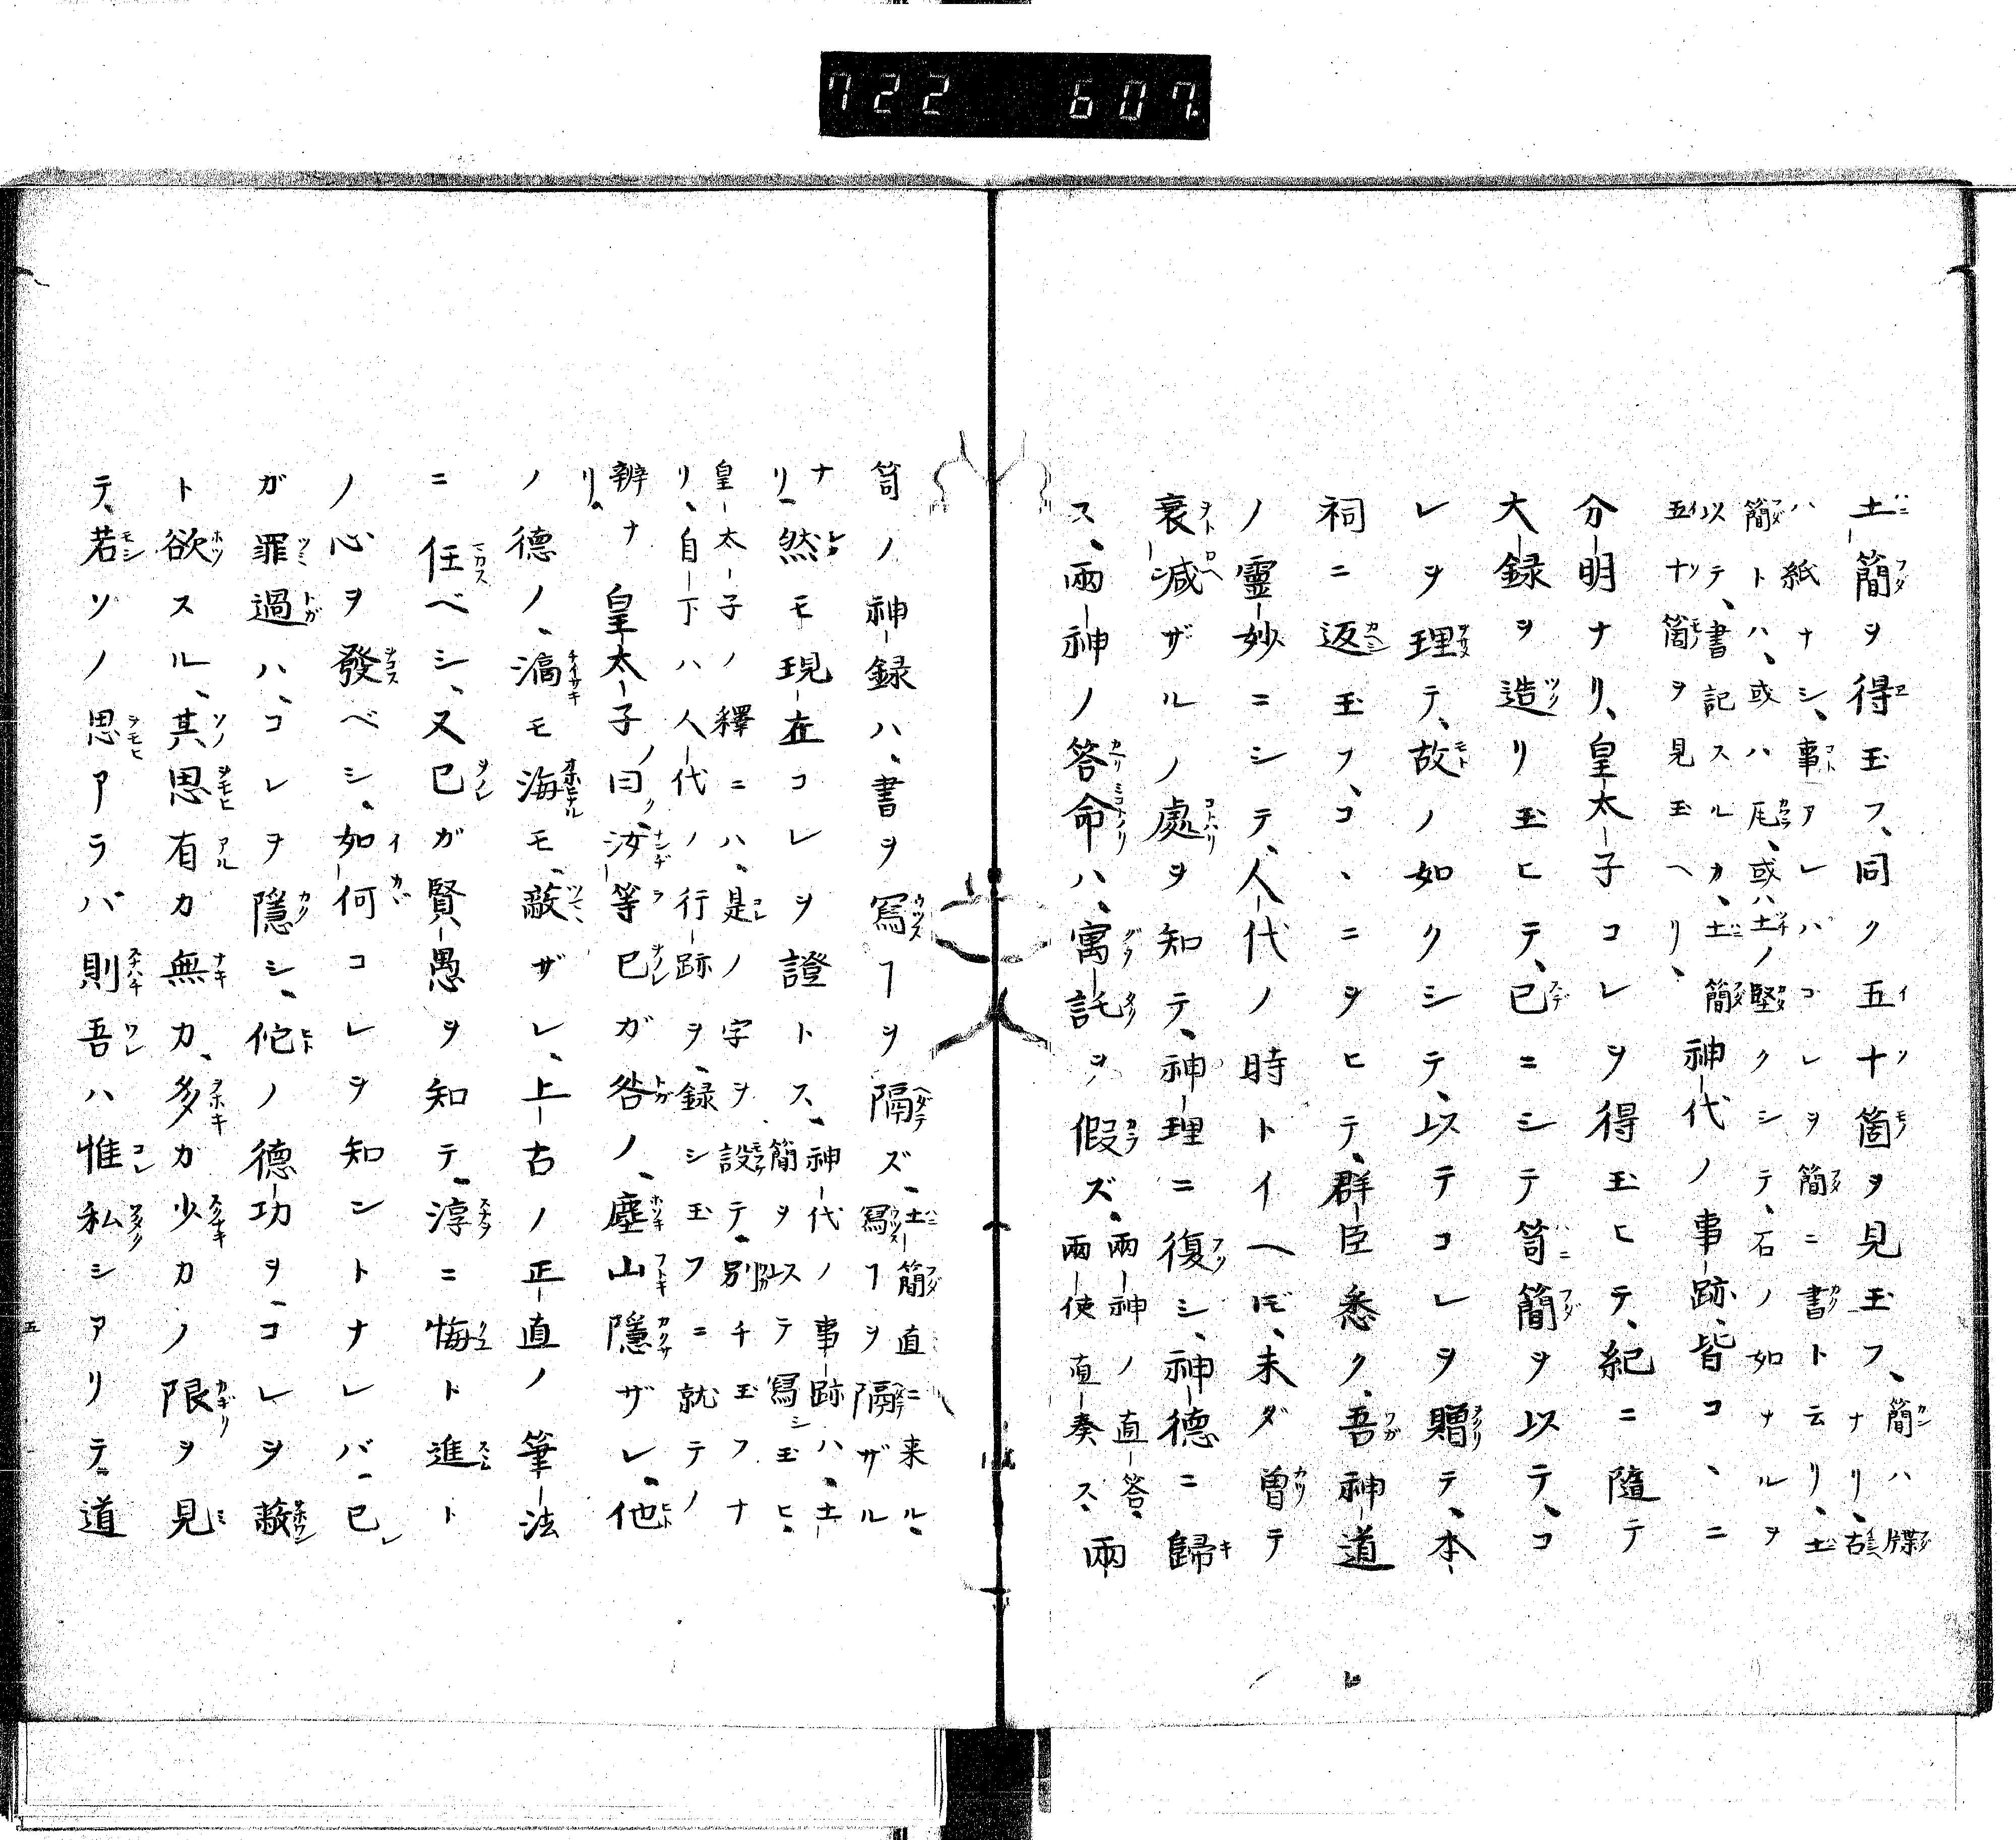 722 607
土簡ヲ得玉フ、同ク五十箇ヲ見玉フ、簡ハ牒
ナリ、古
ハ紙ナシ、事アレバコレヲ簡ニ書ト云リ、土
簡トハ、或ハ瓦、或ハ土ノ堅クシテ、石ノ如ナルヲ
以テ、書記スルカ、土簡
五十箇ヲ見玉ヘリ、
神代ノ事跡、皆コヽニ
分明ナリ、皇太子コレヲ得玉ヒテ、紀ニ隨テ
大録ヲ造リ玉ヒテ、已ニシテ笥簡ヲ以テ、コ
レヲ理テ、故ノ如クシテ、以テコレヲ贈テ、本
祠ニ返玉フ、コヽニヲヒテ、群臣悉ク、吾神道
ノ靈妙ニシテ、人代ノ時トイヘ𪜈、未ダ曽テ
衰減ザルノ處ヲ知テ、神理ニ復シ、神德ニ歸
ス、兩神ノ答命ハ、寓託ヲ假ズ、兩神ノ直答、
兩使直奏ス、
兩
笥ノ神録ハ、書ヲ寫ヿヲ隔ズ、土簡直ニ来ル、
寫ヿヲ隔ザル
ナリ、然モ現在コレヲ證トス、神代ノ事跡ハ、土
簡ヲ以テ寫シ玉ヒ、
皇太子ノ釋ニハ、是ノ字ヲ設テ、別チ玉フナ
リ、自下ハ人代ノ行跡ヲ、録シ玉フニ就テノ
辨ナリ、
皇太子ノ曰ク、汝等已ガ咎ノ、塵山隱ザレ、他
ノ德ノ、滴モ海モ、蔽ザレ、上古ノ正直ノ筆法
ニ任ベシ、又已ガ賢愚ヲ知テ、淳ニ悔ト進ト
ノ心ヲ發ベシ、如何コレヲ知ントナレバ、已レ
ガ罪過ハ、コレヲ隱シ、佗ノ德功ヲ、コレヲ蔽ン
ト欲スル、其思有カ無カ、多カ少カノ限ヲ見
テ、若ソノ思アラバ則吾ハ惟私シアリテ、道
五